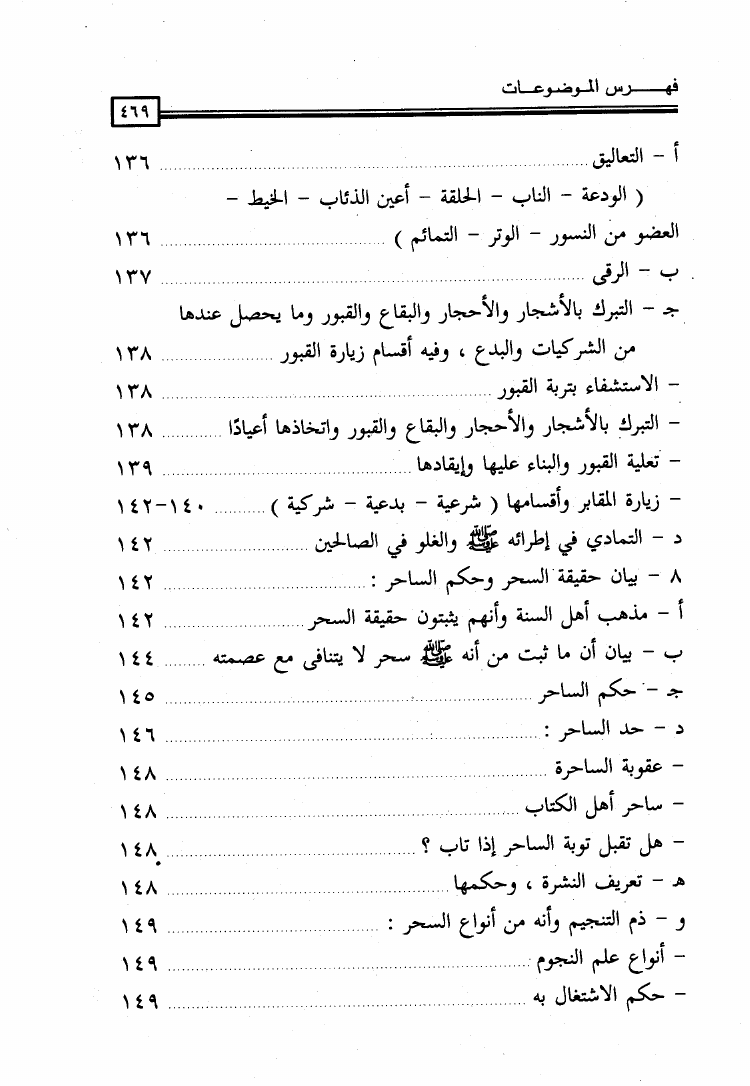 فهـــرس الموضوعــات
٤٦٩
أ - التعاليق ١٣٦
( الودعة - الناب - الحلقة - أعين الذئاب - الخيط -
العضو من النسور - الوتر - التمائم ) ١٣٦
ب - الرقى ١٣٧
جـ - التبرك بالأشجار والأحجار والبقاع والقبور وما يحصل عندها
من الشركيات والبدع ، وفيه أقسام زيارة القبور ١٣٨
- الاستشفاء بتربة القبور ١٣٨
- التبرك بالأشجار والأحجار والبقاع والقبور واتخاذها أعيادًا ١٣٨
- تعلية القبور والبناء عليها وإيقادها ١٣٩
- زيارة المقابر وأقسامها ( شرعية - بدعية - شركية ) ١٤٠-١٤٢
د - التمادي في إطرائه ﷺ والغلو في الصالحين ١٤٢
٨ - بيان حقيقة السحر وحكم الساحر : ١٤٢
أ - مذهب أهل السنة وأنهم يثبتون حقيقة السحر ١٤٢
ب - بيان أن ما ثبت من أنه ﷺ سحر لا يتنافى مع عصمته ١٤٤
جـ - حكم الساحر ١٤٥
د - حد الساحر : ١٤٦
- عقوبة الساحرة ١٤٨
- ساحر أهل الكتاب ١٤٨
- هل تقبل توبة الساحر إذا تاب ؟ ١٤٨
هـ - تعريف النشرة ، وحكمها ١٤٨
و - ذم التنجيم وأنه من أنواع السحر : ١٤٩
- أنواع علم النجوم ١٤٩
- حكم الاشتغال به ١٤٩